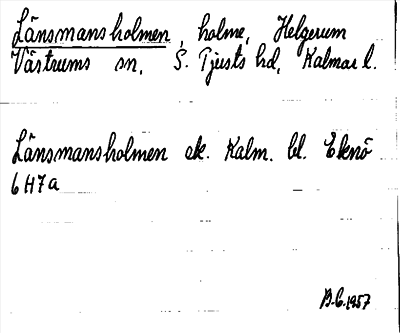 Länsmansholmen, holme, Helgerum
Västrums sn, S. Tjusts hd, Kalmar l.
Länsmansholmen ek. Kalm. bl. Eknö
6H7a
B.C. 1957